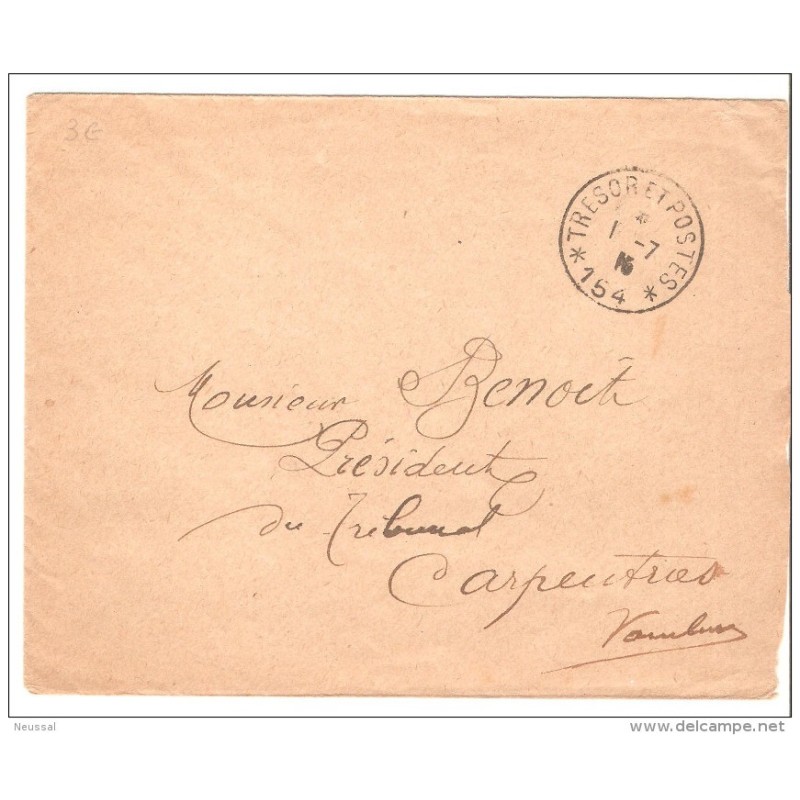 3€
* TRESOR ET POSTES *
-7
154
Monsieur Benoit
Président
du Tribunal
Carpentras
Vaucluse
Neussal
www.delcampe.net